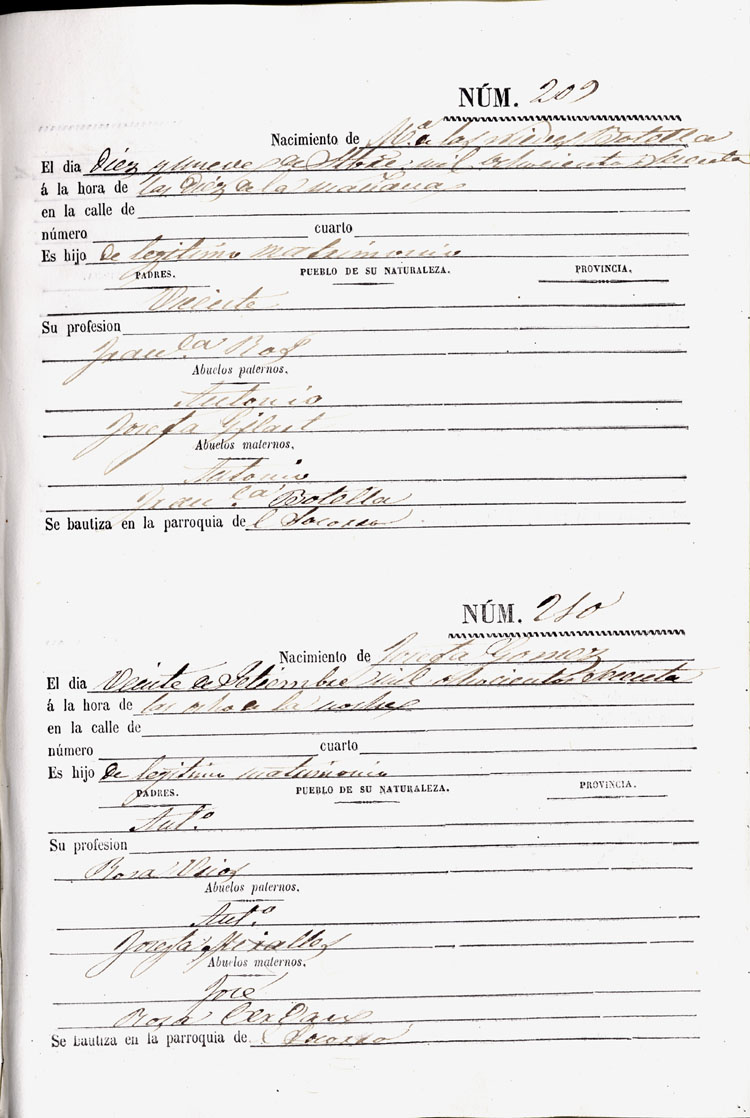 NÚM. 209
Nacimiento de M.ª de las Nieves Botella
El dia Diez y nueve de Stbre mil ochocientos sesenta
á la hora de las Diez de la mañana
en la calle de
número cuarto
Es hijo de legitimo matrimonio
PADRES. PUEBLO DE SU NATURALEZA. PROVINCIA.
Vicente
Su profesion
Fran.ca Ros
Abuelos paternos.
Antonio
Josefa Gilart
Abuelos maternos.
Antonio
Fran.ca Botella
Se bautiza en la parroquia de l Socorro
NÚM. 210
Nacimiento de Josefa Gomez
El dia Veinte de Setiembre mil ochocientos sesenta
á la hora de las ocho de la noche
en la calle de
número cuarto
Es hijo de legitimo matrimonio
PADRES. PUEBLO DE SU NATURALEZA. PROVINCIA.
Ant.º
Su profesion
Rosa
Abuelos paternos.
Ant.º
Josefa Miralles
Abuelos maternos.
José
Rosa
Se bautiza en la parroquia de l Socorro